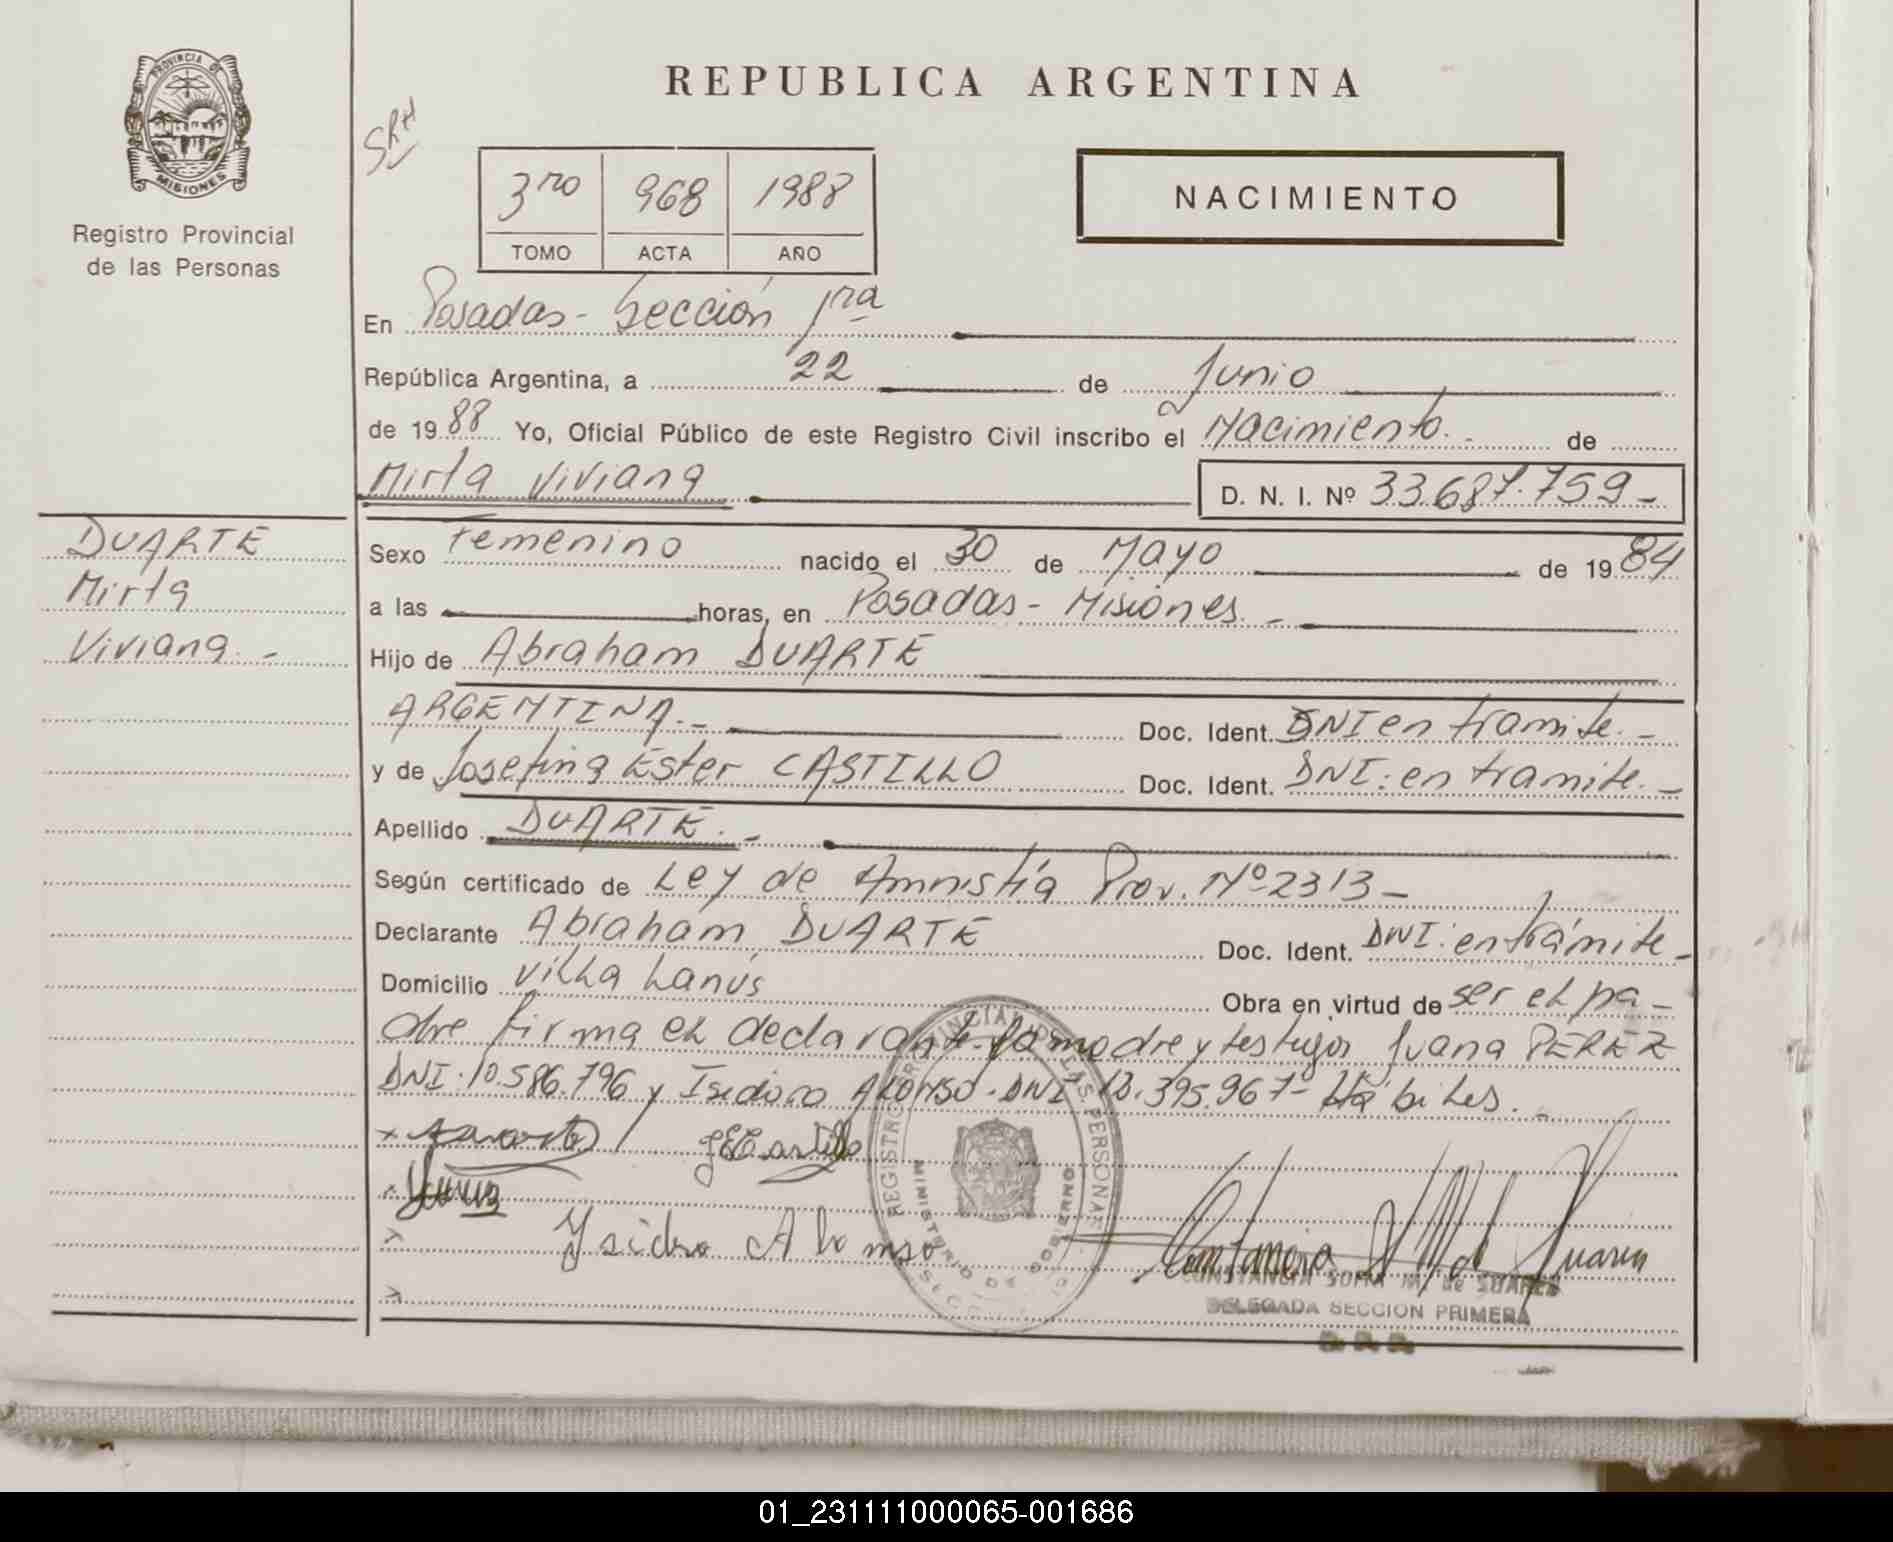 PROVINCIA DE
MISIONES
Registro Provincial
de las Personas
REPUBLICA ARGENTINA
NACIMIENTO
3ro 968 1988
TOMO ACTA AÑO
En Posadas - Sección 1ra
República Argentina, a 22 de Junio
de 1988 Yo, Oficial Público de este Registro Civil inscribo el Nacimiento. de
Mirta Viviana D. N. I. Nº 33.687.759-
DUARTE
Mirta
Viviana. -
Sexo Femenino nacido el 30 de Mayo de 1984
a las horas, en Posadas - Misiones. -
Hijo de Abraham DUARTE
ARGENTINA. - Doc. Ident. DNI en tramite. -
y de Josefina Ester CASTILLO Doc. Ident. DNI: en tramite. -
Apellido DUARTE. -
Según certificado de Ley de Amnistía Prov. Nº 2313 -
Declarante Abraham DUARTE Doc. Ident. DNI: en trámite -
Domicilio Villa Lanús Obra en virtud de ser el pa-
dre firma el declarante la madre y testigos Juana PEREZ
DNI. 10.586.796 y Isidoro ALONSO. DNI 395.967 - Hábiles. -
JECastillo
Ysidro Alonso
REGISTRO PROVINCIAL DE LAS PERSONAS
MINISTERIO DE GOBIERNO
CONSTANCIA SOFIA M. de SUAREZ
DELEGADA SECCION PRIMERA
01_231111000065-001686